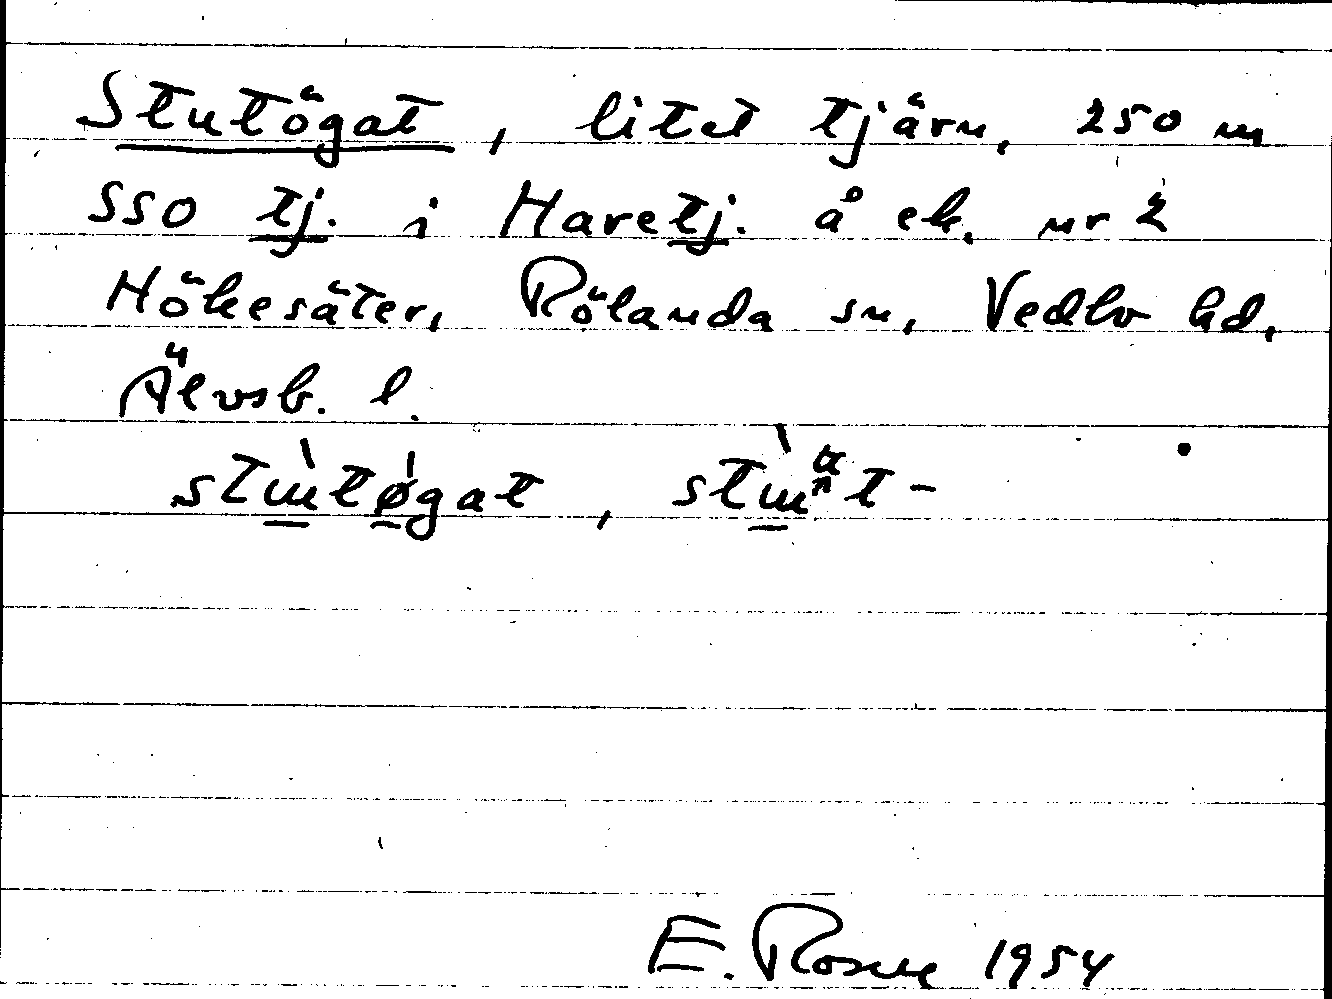 Stutögat, litet tjärn, 250 m
SSO tj. i Haretj. å ek. nr 2
Hökesäter, Rölanda sn, Vedbo hd,
Älvsb. l.
E. Rosene 1954